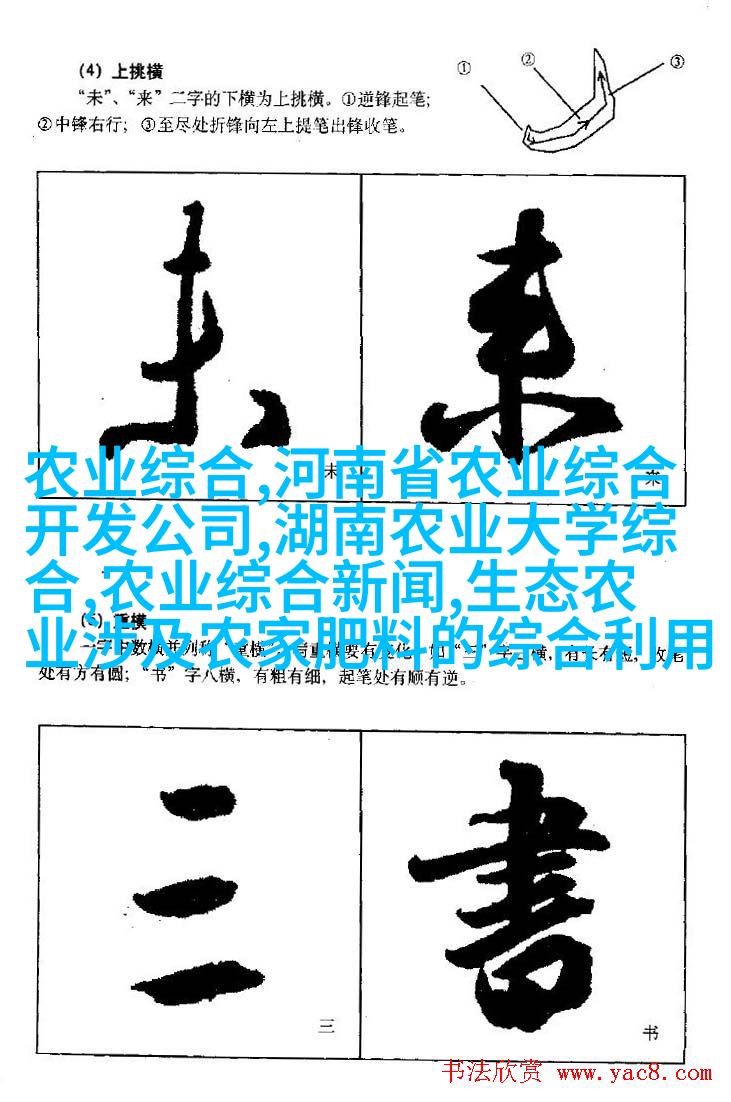 (4) 上挑横
“未”、“来”二字的下横为上挑横。①逆锋起笔；
②中锋右行；③至尽处折锋向左上提笔出锋收笔。
① ② ③
未 来
未 来
农业综合,河南省农业综合
开发公司,湖南农业大学综
合,农业综合新闻,生态农
业涉及农家肥料的综合利用
(5) 重横
处有方有圆；“书”字八横，有粗有细，起笔处有顺有逆。
三 書
三 书
书法欣赏 www.yac8.com